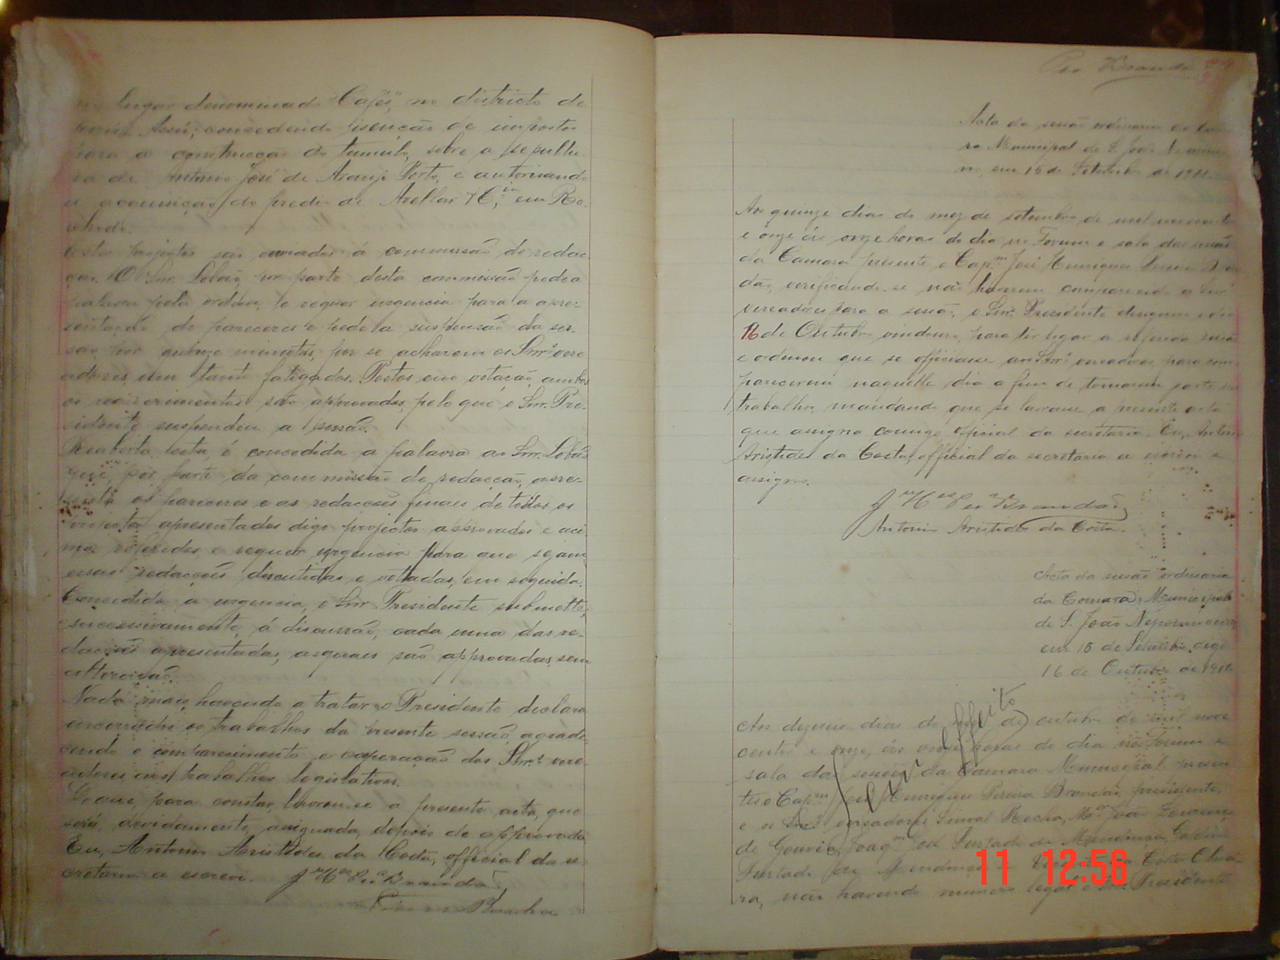 lugar denominado "Cafés", no districto de
Assú; concedendo isenção de impostos
para a construcção do tumulo, sobre a sepultu-
ra de Antonio José de Araujo Porto, e autorisando
a acquisição do predio de Avellar & Cia, em Ro-
chedo.
Estes projectos são enviados á commissão de redac-
ção. O Snr. Lobão, por parte desta commissão pede a
palavra pela ordem, e requer urgencia para a apre-
sentação de pareceres e pede a suspensão da ses-
são por quinze minutos, por se acharem os Snrs. vere-
adores um tanto fatigados. Postos em votação, ambos
os requerimentos são approvados, pelo que o Snr. Pre-
sidente suspendeu a sessão.
Reaberta esta, é concedida a palavra ao Snr. Lobão
que, por parte da commissão de redacção, apre-
senta os pareceres e as redacções finaes de todos os
apresentados digo projectos approvados e aci-
ma referidos e requer urgencia para que sejam
essas redacções discutidas e votadas, em seguida.
Concedida a urgencia, o Snr. Presidente submette,
successivamente, á discussão, cada uma das re-
dacções apresentadas, as quaes são approvadas, sem
alteração.
Nada mais havendo a tratar, o Presidente declara
encerrados os trabalhos da presente sessão, agrade-
cendo o comparecimento e cooperação dos Snrs. vere-
adores aos trabalhos legislativos.
Do que, para constar, lavrou-se a presente acta, que
será, devidamente, assignada, depois de approvada.
Eu, Antonio Aristides da Costa, official da se-
cretaria a escrevi. J. Hes. Pera. Brandão
Rocha
Pera Brandão
Acta da sessão ordinaria da Cama-
ra Municipal de S. João Nepomuce-
no, em 15 de Setembro de 1911.
Aos quinze dias do mez de setembro de mil novecentos
e onze ás onze horas do dia no Forum e sala das sessões
da Camara presente o Capm. José Henriques Pereira Bran-
dão, verificando-se não haverem comparecido os Snrs.
vereadores para a sessão, o Snr. Presidente designou o dia
16 de Outubro vindouro, para ter logar a referida sessão
e ordenou que se officiasse aos Snrs. vereadores para com-
parecerem naquelle dia a fim de tomarem parte nos
trabalhos, mandando que se lavrasse a presente acta
que assigna comigo official da secretaria. Eu, Antonio
Aristides da Costa, official da secretaria a escrevi e
assigno.
J. Hes. Pera. Brandão
Antonio Aristides da Costa.
Acta da sessão ordinaria
da Camara Municipal
de S. João Nepomuceno,
em 15 de Setembro, digo
16 de Outubro de 1911.
Sem effeito
Aos dezeseis dias do mez de outubro de mil nove-
centos e onze, ás onze horas do dia no Forum e
sala das sessões da Camara Municipal, presen-
te o Capm. José Henriques Pereira Brandão, presidente,
e os Snrs. vereadores Rocha, Mel. João Lourenço
de Gouvêa, Joaqm. José Furtado de Mendonça,
Furtado de Mendonça e Costa Olivei-
ra, não havendo numero legal o Snr. Presidente
11 12:56